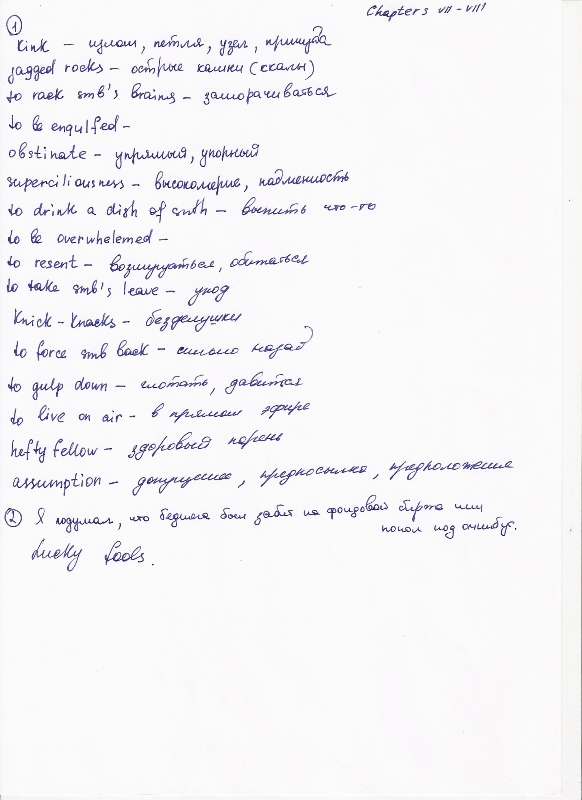 Chapters VII - VIII
①
kink – излом, петля, узел, причуда
jagged rocks – острые камни (скалы)
to rack smb's brains – заморачиваться
to be engulfed –
obstinate – упрямый, упорный
superciliousness – высокомерие, надменность
to drink a dish of smth – выпить что-то
to be overwhelemed –
to resent – возмущаться, обижаться
to take smb's leave – уход
Knick-Knacks – безделушки
to force smb back – сильно назад
to gulp down – глотать, давится
to live on air – в прямом эфире
hefty fellow – здоровый парень
assumption – допущение, предпосылка, предположение
② Я подумал, что бедняга был забит на фондовой бирже или
попал под омнибус.
Lucky fools.